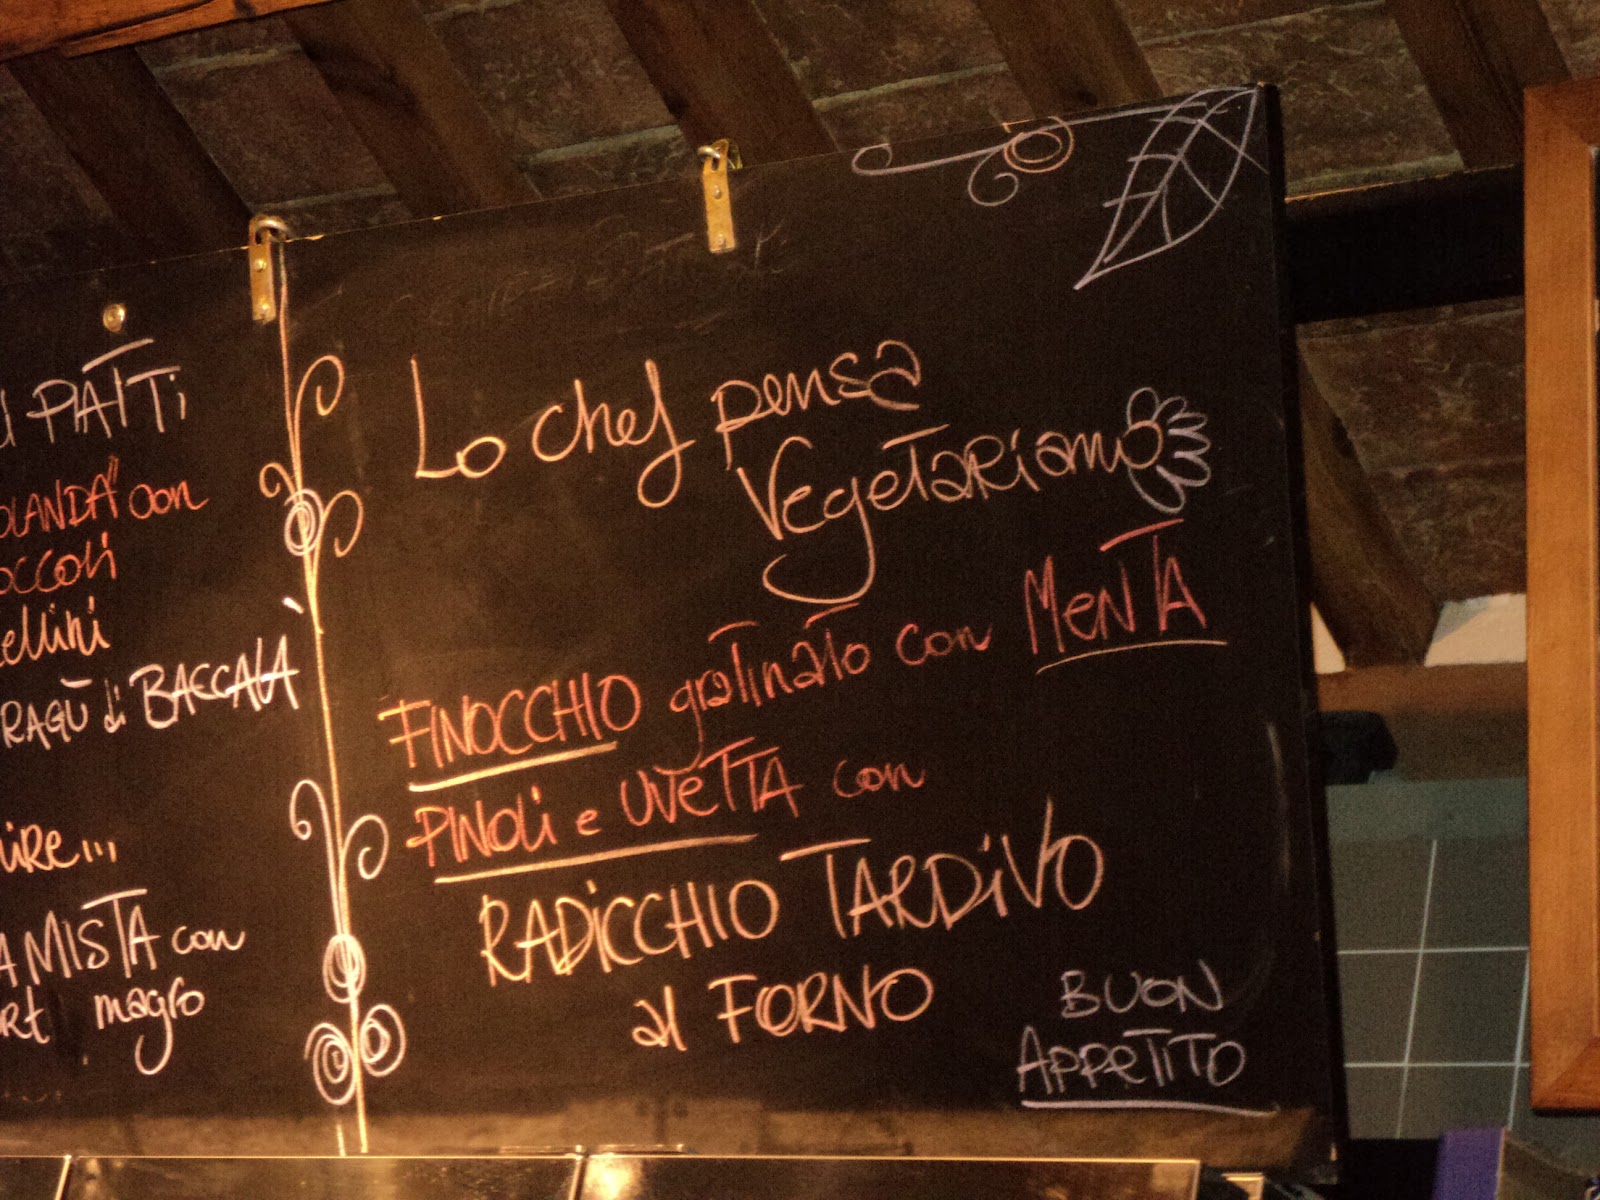 PIATTI
con
RAGÙ di BACCALÀ
MISTA con
magro
Lo chef pensa
Vegetariano
FINOCCHIO gratinato con MENTA
PINOLI e UVETTA con
RADICCHIO TARDIVO
al FORNO
BUON
APPETITO